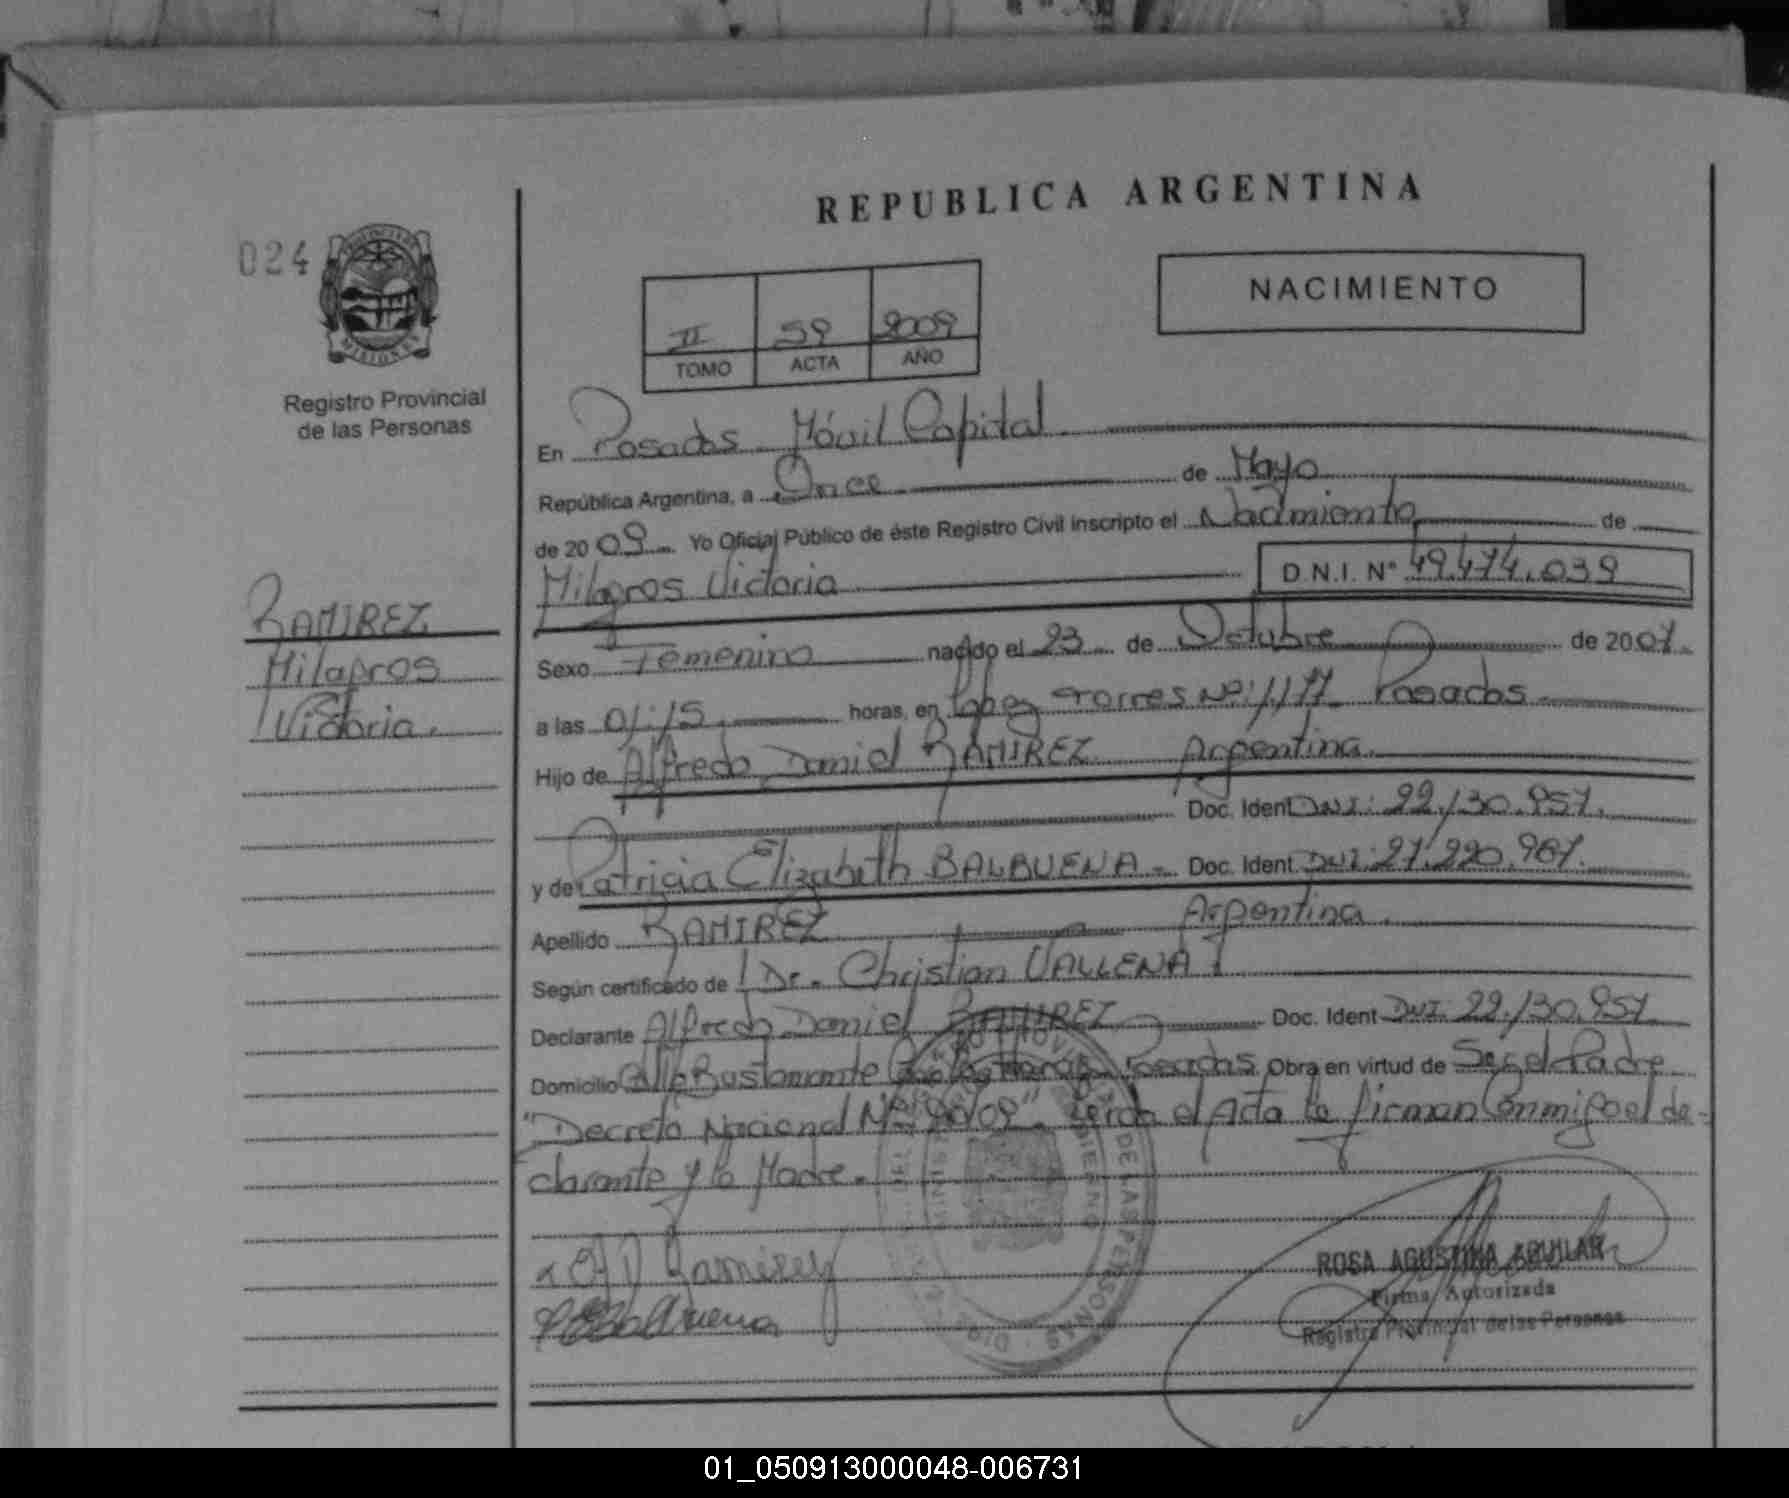 REPUBLICA ARGENTINA
024
PROVINCIA DE MISIONES
Registro Provincial
de las Personas
NACIMIENTO
II 59 2009
TOMO ACTA AÑO
En Posadas Móvil Capital
República Argentina, a Once de Mayo
de 2009 Yo Oficial Público de éste Registro Civil inscripto el Nacimiento de
Milagros Victoria D.N.I. Nº 49.474.039
RAMIREZ
Milagros
Victoria.
Sexo Femenino nacido el 23 de Octubre de 2007
a las 01:15 horas, en López Torres Nº: 1177 Posadas
Hijo de Alfredo Daniel RAMIREZ Argentina
Doc. Ident DNI: 22.130.957.
y de Patricia Elizabeth BALBUENA Doc. Ident. DNI: 27.220.967.
Apellido RAMIREZ Argentina.
Según certificado de Dr. Christian VALLENA
Declarante Alfredo Daniel RAMIREZ Doc. Ident DNI: 22.130.957
Domicilio Calle Bustamante Posadas Obra en virtud de Ser el Padre
"Decreto Nacional Nº 90/09". Leída el Acta la firman Conmigo el de-
clarante y la Madre.
Ramirez
Balbuena
DE LAS PERSONAS
ROSA AGUSTINA AGUILAR
Firma Autorizada
Registro Provincial de las Personas
01_050913000048-006731